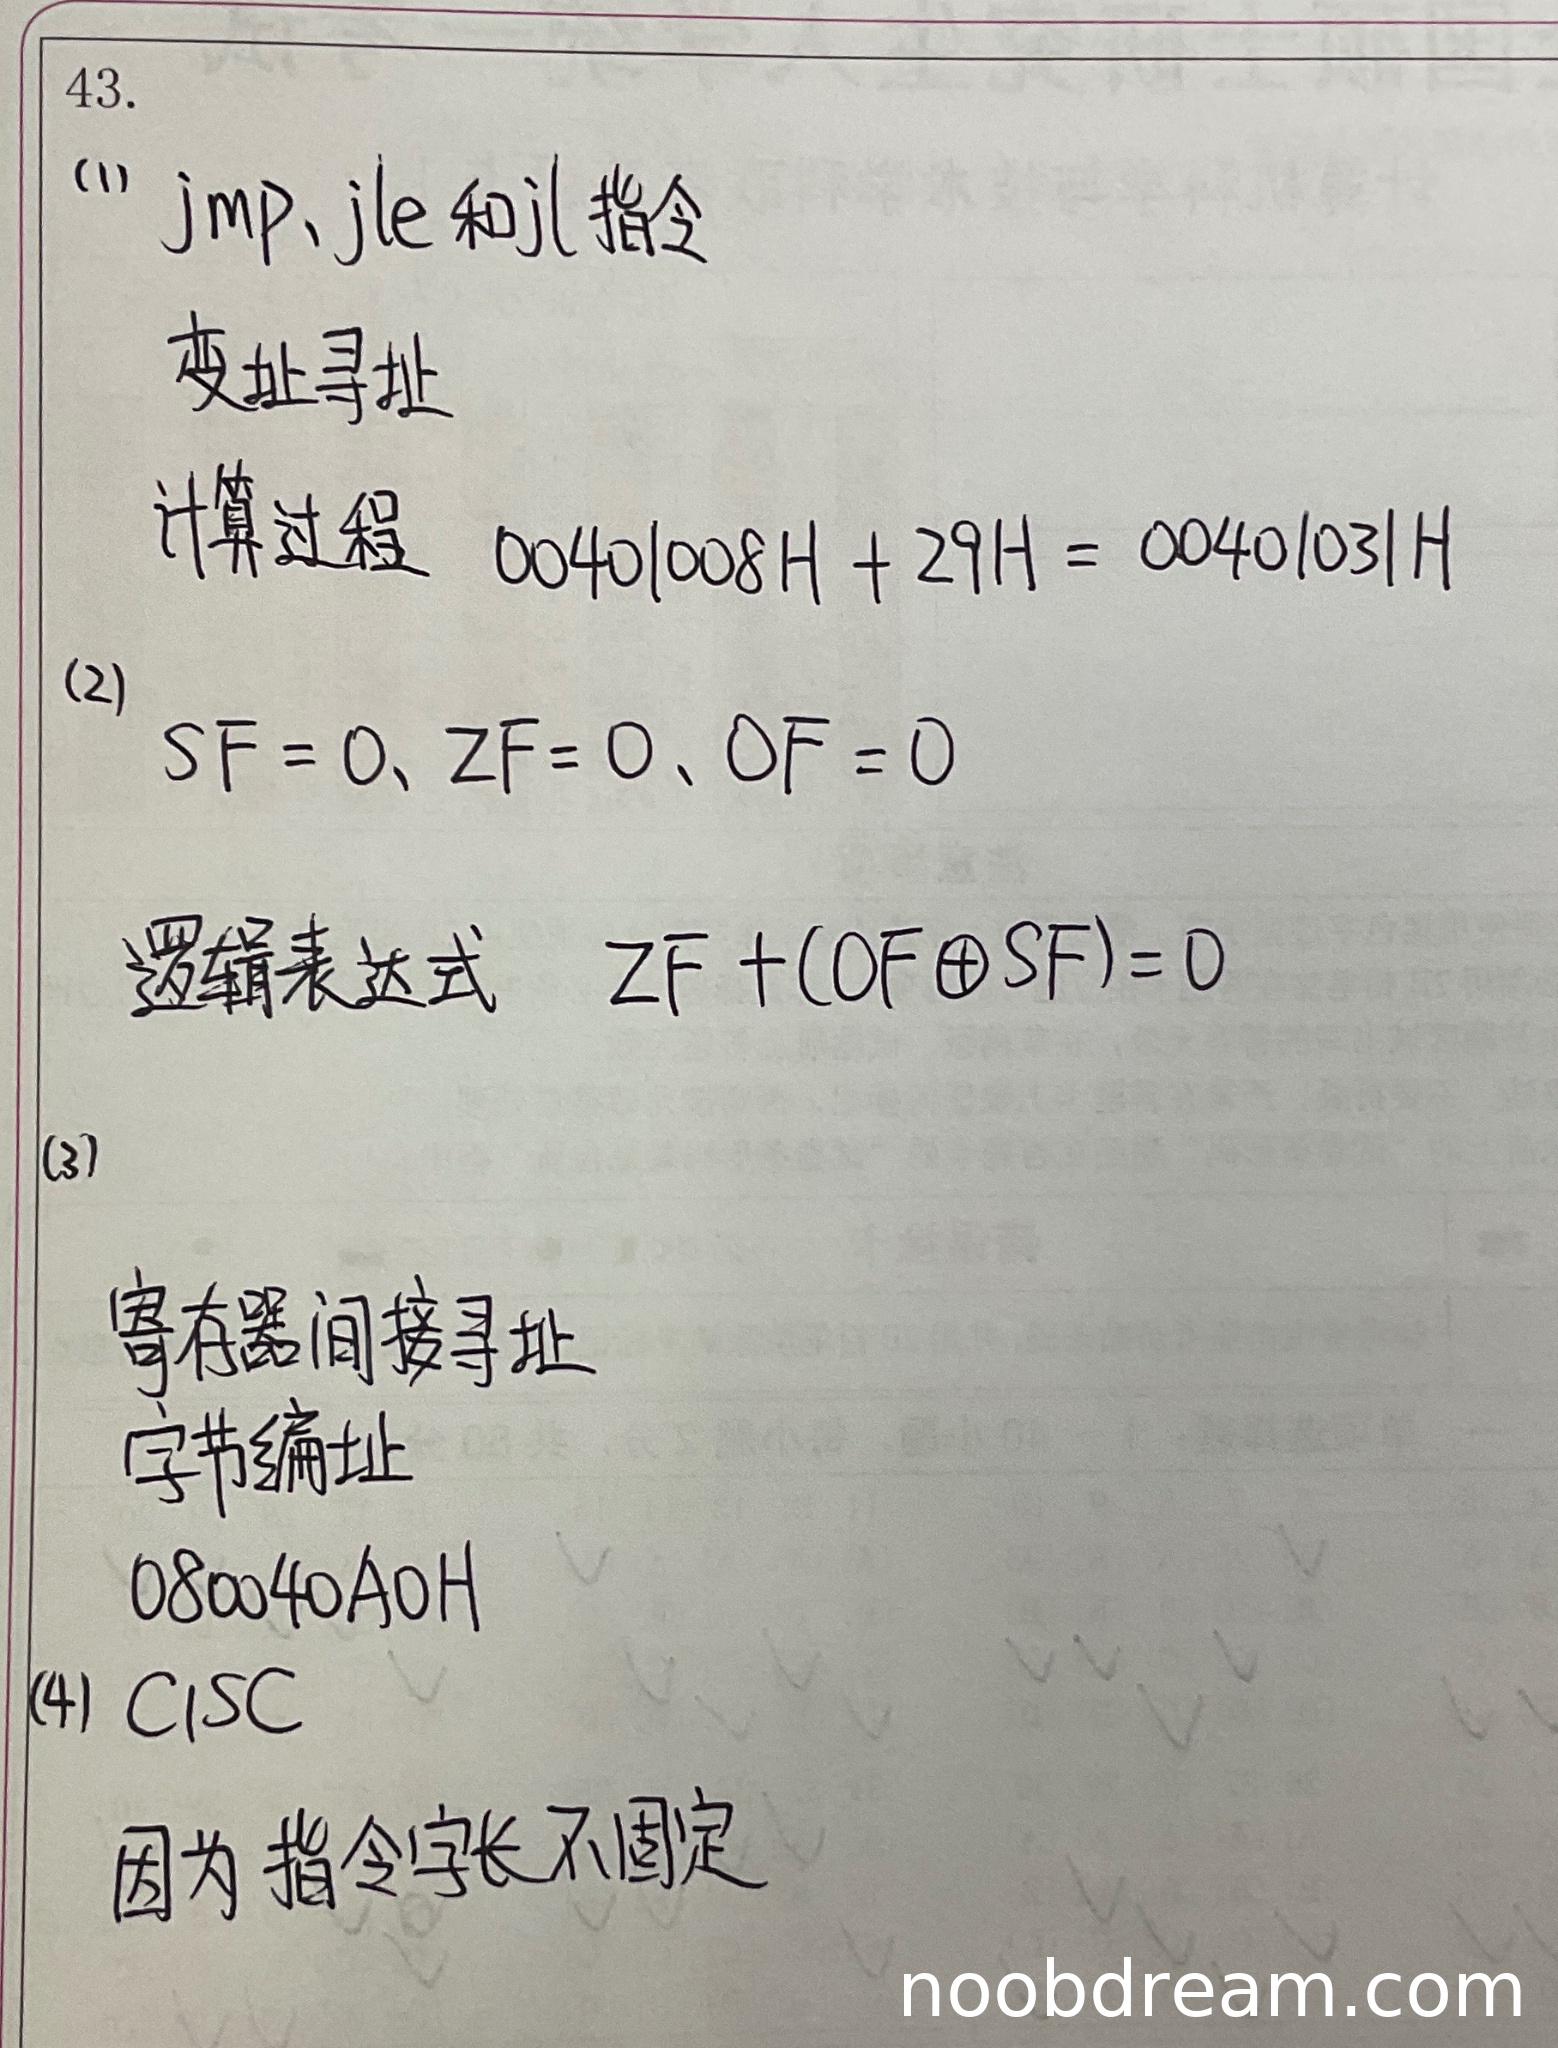 43.
(1) jmp、jle和jl指令
变址寻址
计算过程 00401008H + 29H = 00401031H
(2)
SF = 0、ZF = 0、OF = 0
逻辑表达式 ZF + (OF⊕SF) = 0
(3)
寄存器间接寻址
字节编址
080040A0H
(4) CISC
因为指令字长不固定
noobdream.com